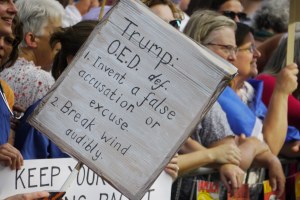 Trump:
O.E.D. def:
1. Invent a false
accusation or
excuse
2. Break wind
audibly
KEEP YOUR